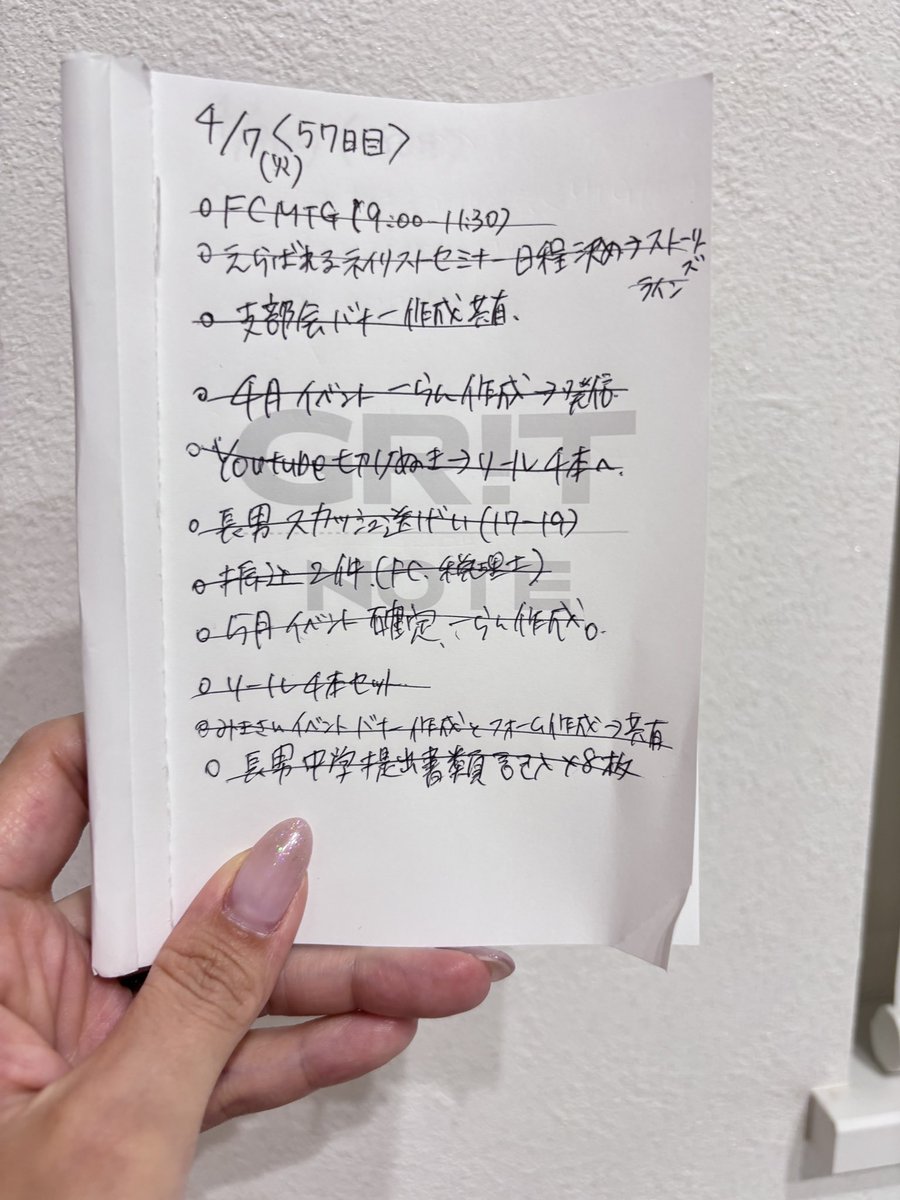 4/7<57日目>
(火)
○ FCMTG (9:00-11:30)
○ えらばれるネイリストセミナー日程決め→ストーリーズ
ライン
○ 支部会バナー作成共有、
○ 4月イベント一らん作成→発信
○ Youtube切りぬき→リール4本へ.
○ 長男スカッシュ送げい(17-19)
○ 振込2件.(FC、税理士)
○ 5月イベント確定、一らん作成。
○ リール4本セット
○ みきさんイベントバナー作成とフォーム作成→共有
○ 長男中学提出書類記入×8枚
GR!T
NOTE